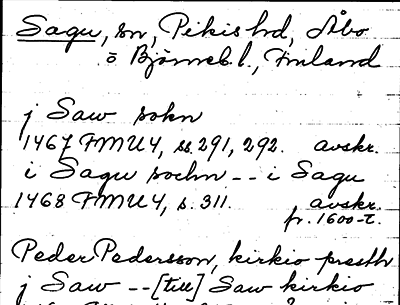 Sagu, sn, Pikis hd, Åbo
o Björneb. l., Finland
j Saw sokn
1467 FMU 4, ss. 291, 292. avskr.
i Sagu sochn -- i Sagu
1468 FMU 4, s. 311. avskr.
fr. 1600-t.
Peder Pedersson, kirkio presth
j Saw -- [till] Saw kirkio